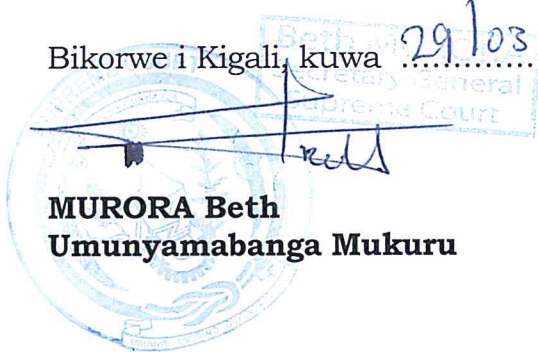 Bikorwe i Kigali, kuwa 29/03
Beth
Secretary General
Supreme Court
MURORA Beth
Umunyamabanga Mukuru